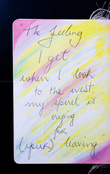 "The feeling
I get
when I look
to the west
my spirit is
crying
for
(your) leaving